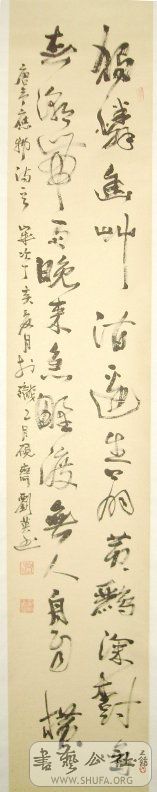 獨憐幽艸澗邊生上有黃鸝深樹鳴
春潮帶雨晚來急野渡無人舟自橫
唐韋應物詩 歲次丁亥夏月於 月硯齋劉英書
書藝公社
WWW.SHUFA.ORG